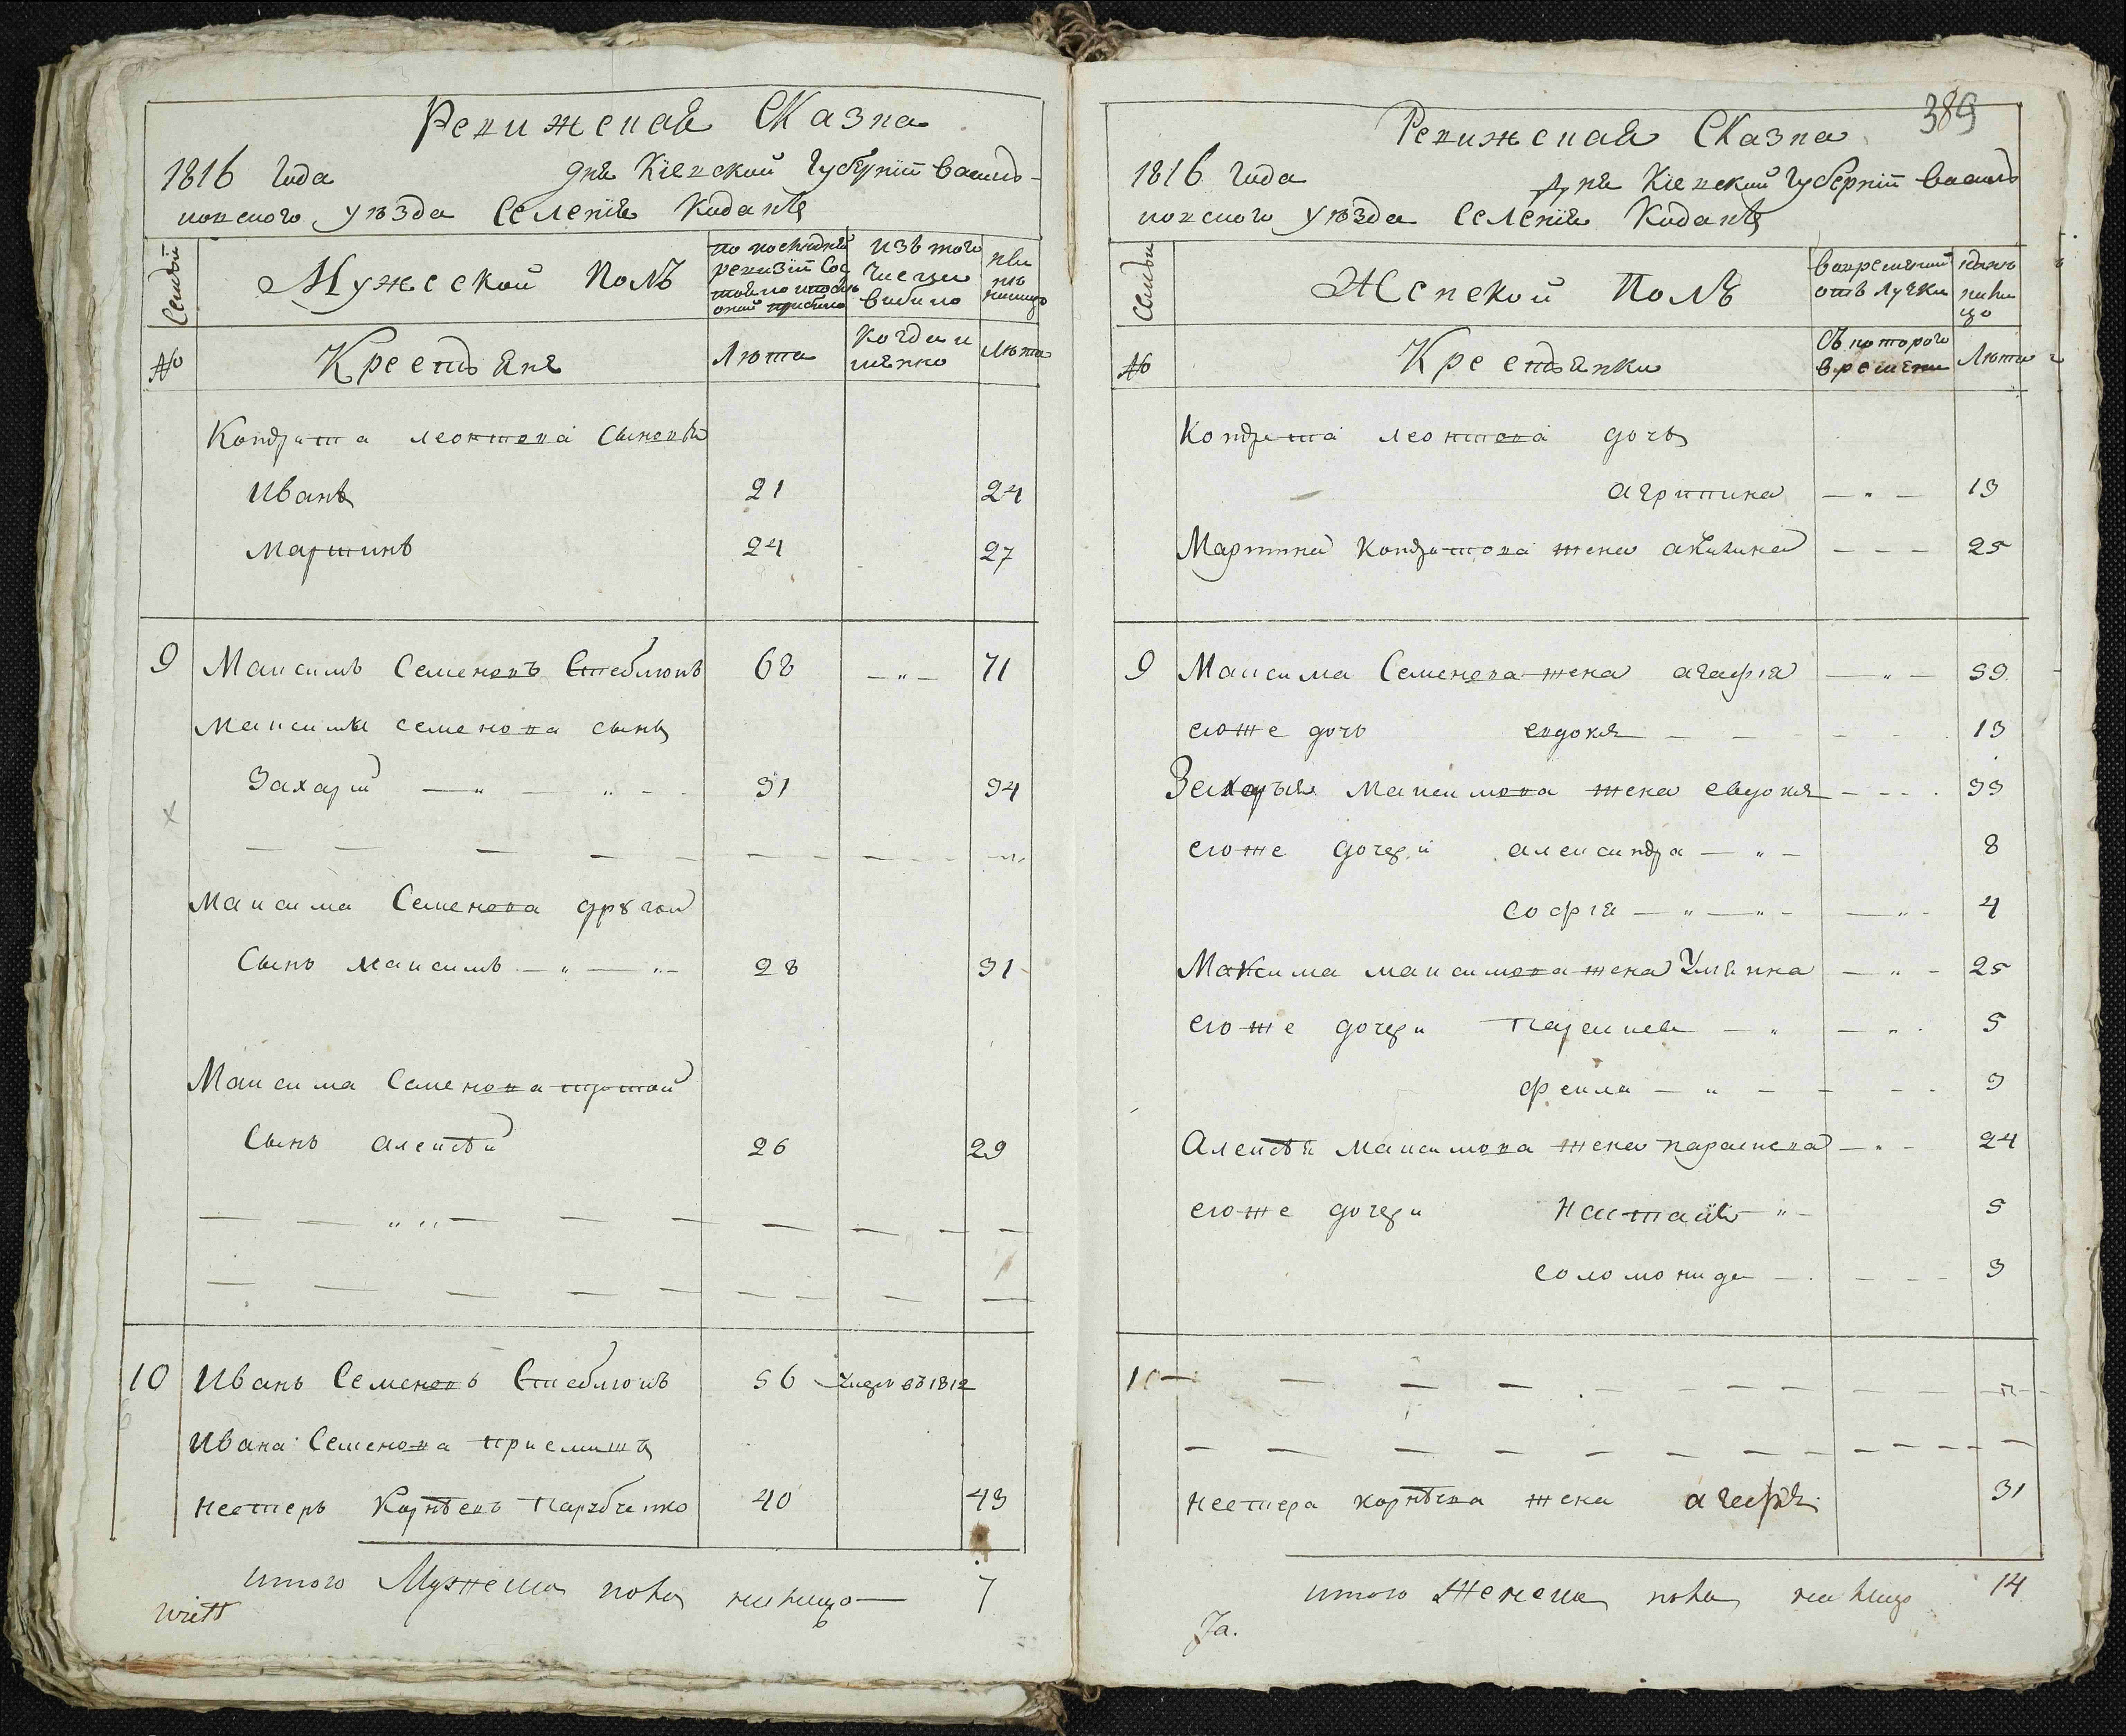 Ревижская Сказка
1816 Года дня Кіевской Губерніи Василь-
ковскаго уѣзда Селенія Коданкѣ
Семьи
Мужеской Полъ
по последней ревизіи состояло и после оной прибыло
изъ того числа выбыло
ныне на лицо
№
Крестьяне
Лѣта
когда и именно
Лѣта
Кондрата леонтова сыновья
Иванъ 21 24
Мартинъ 24 27
9 Максимъ Семеновъ Стеблюкъ 68 — „ — 71
Максима семенова сынъ
Захарій — „ — „ — 31 34
Максима Семенова другой
Сынъ Максимъ — „ — „ — 28 31
Максима Семенова третой
Сынъ алексѣй 26 29
10 Иванъ Семеновъ Стеблюкъ 56 въ 1812
Ивана Семенова приемишъ
нестеръ Корнѣевъ 40 43
итого Мужеска пола налицо — 7
389
Ревижская Сказка
1816 года дня Кіевской Губерніи Василь
ковскаго уѣзда Селенія Коданкѣ
Семьи
Женской Полъ
во временной отлучки
ныне на лицо
№
Крестьянки
Съ котораго времени
Лѣта
Кондрата леонтова дочь
агрипина — „ — 13
Мартина Кондратова жена акилина — — — 25
9 Максима Семенова жена агафія — „ — 59
егоже дочь евдокія — — — — 13
Захарыя Максимова жена евдокія — — — 33
егоже дочери александра — „ — 8
софія — „ — „ — — „ — 4
Максима максимова жена Ульянна — „ — 25
егоже дочери Параскева — „ — „ 5
фекла — „ — — — — 3
Алексѣя Максимова жена параскева — „ — 24
егоже дочери Настасія — „ — 5
соломонида — — — — 3
10
нестера корнѣева жена агафія 31
итого Женска пола на лицо 14